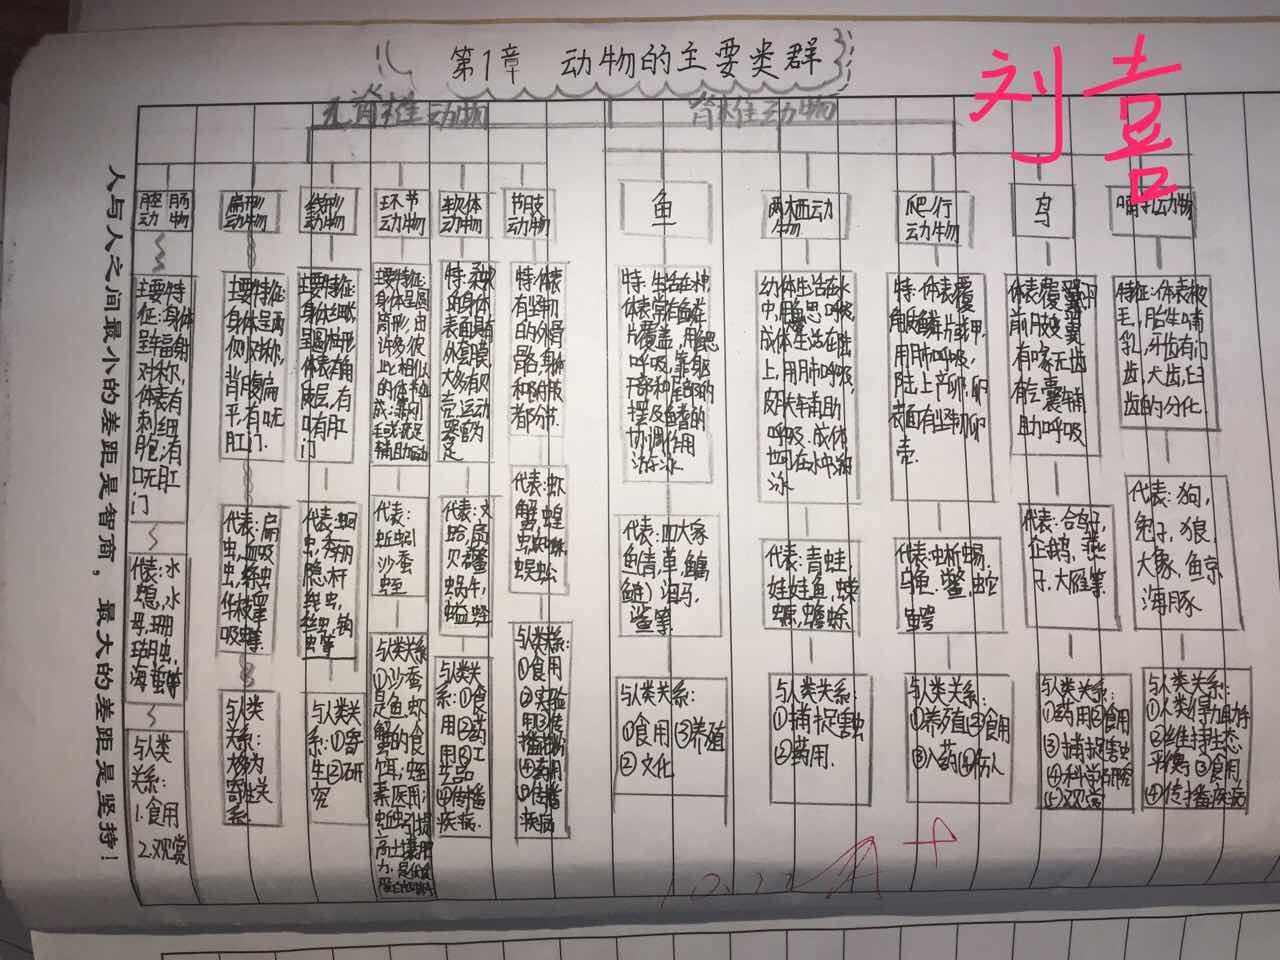 第1章 动物的主要类群
刘喜
无脊椎动物
脊椎动物
人与人之间最小的差距是智商，最大的差距是坚持！
腔肠
动物
主要特
征：身体
呈辐射
对称，
体表有
刺细
胞；有
口无肛
门
代表：水
螅，水
母，珊
瑚虫，
海葵等
与人类
关系：
1.食用
2.观赏
扁形
动物
主要特征
身体呈两
侧对称，
背腹扁
平，有口无
肛门。
代表：扁
虫，吸
虫，绦虫
与人类
关系：
大多为
寄生关
系
线形
动物
主要特征：
身体细长
圆柱形
体表有角
质层，有
口有肛
门
与人类关
系：①寄
生②研
究
环节
动物
主要特征：
身体呈圆
筒形，由
许多彼
此相似
的体节组
成；靠刚
毛或疣足
辅助运动
代表：
蚯蚓
沙蚕
蛭
与人类关系
①沙蚕
是鱼虾
蟹的食
饵；蛭
素医用；
软体
动物
特：柔软
的身体
表面有
外套膜，
大多有贝
壳；运动
器官为
足
与人类关
系：①食
用②药
用③工
艺品
④传播
疾病.
节肢
动物
特：体表
有坚韧
的外骨
骼，身体
和附肢
都分节.
代表：虾
蟹，蝗
虫，蜘蛛，
蜈蚣
与人类关系：
①食用
②实验
④药用
⑤传播
疾病
鱼
特：生活在水中
体表常有鳞
片覆盖，用鳃
呼吸，靠身
躯干部和尾部的
摆动及鳍的
协调作用
游泳
代表：四大家
鱼（青，草，鳙
鲢）海马，
鲨等
与人类关系：
①食用 ③养殖
②文化
两栖动
物
幼体生活在水
中，用鳃呼吸，
成体生活在陆
上，用肺呼吸，
皮肤辅助
呼吸.成体
也可在水中游
泳
代表：青蛙，
娃娃鱼，蝾
螈，蟾蜍
与人类关系：
①捕捉害虫
②药用.
爬行
动物
特：体表覆
角质鳞片或甲，
用肺呼吸，
陆上产卵，卵
表面有坚韧卵
壳.
代表：蜥蜴，
龟，鳖，蛇
鳄
与人类关系：
①养殖②食用
③入药④伤人
鸟
体表覆羽
前肢变翼
有喙无齿
有气囊辅
助呼吸
企鹅，燕
子，大雁等
与人类关系：
①药用②食用
③捕捉害虫
④科学研究
⑤观赏
哺乳动物
特征：体表被
毛，胎生哺
乳，牙齿有门
齿，犬齿，臼
齿的分化.
代表：狗，
兔子，狼，
大象，鲸，
海豚
与人类关系：
①人类得力助手
②维持生态
平衡③食用
④传播疾病
A+